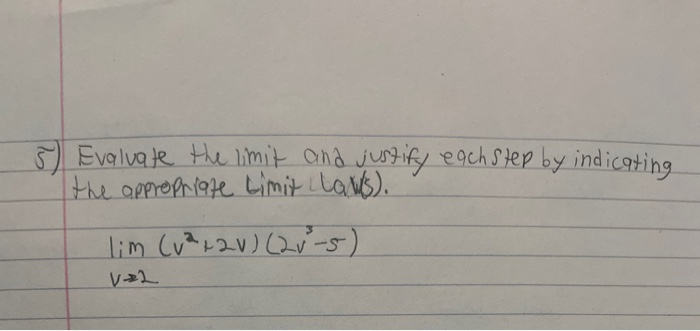 5) Evaluate the limit and justify each step by indicating
the appropriate Limit Law(s).
lim (v²+2v)(2v³-5)
v→2